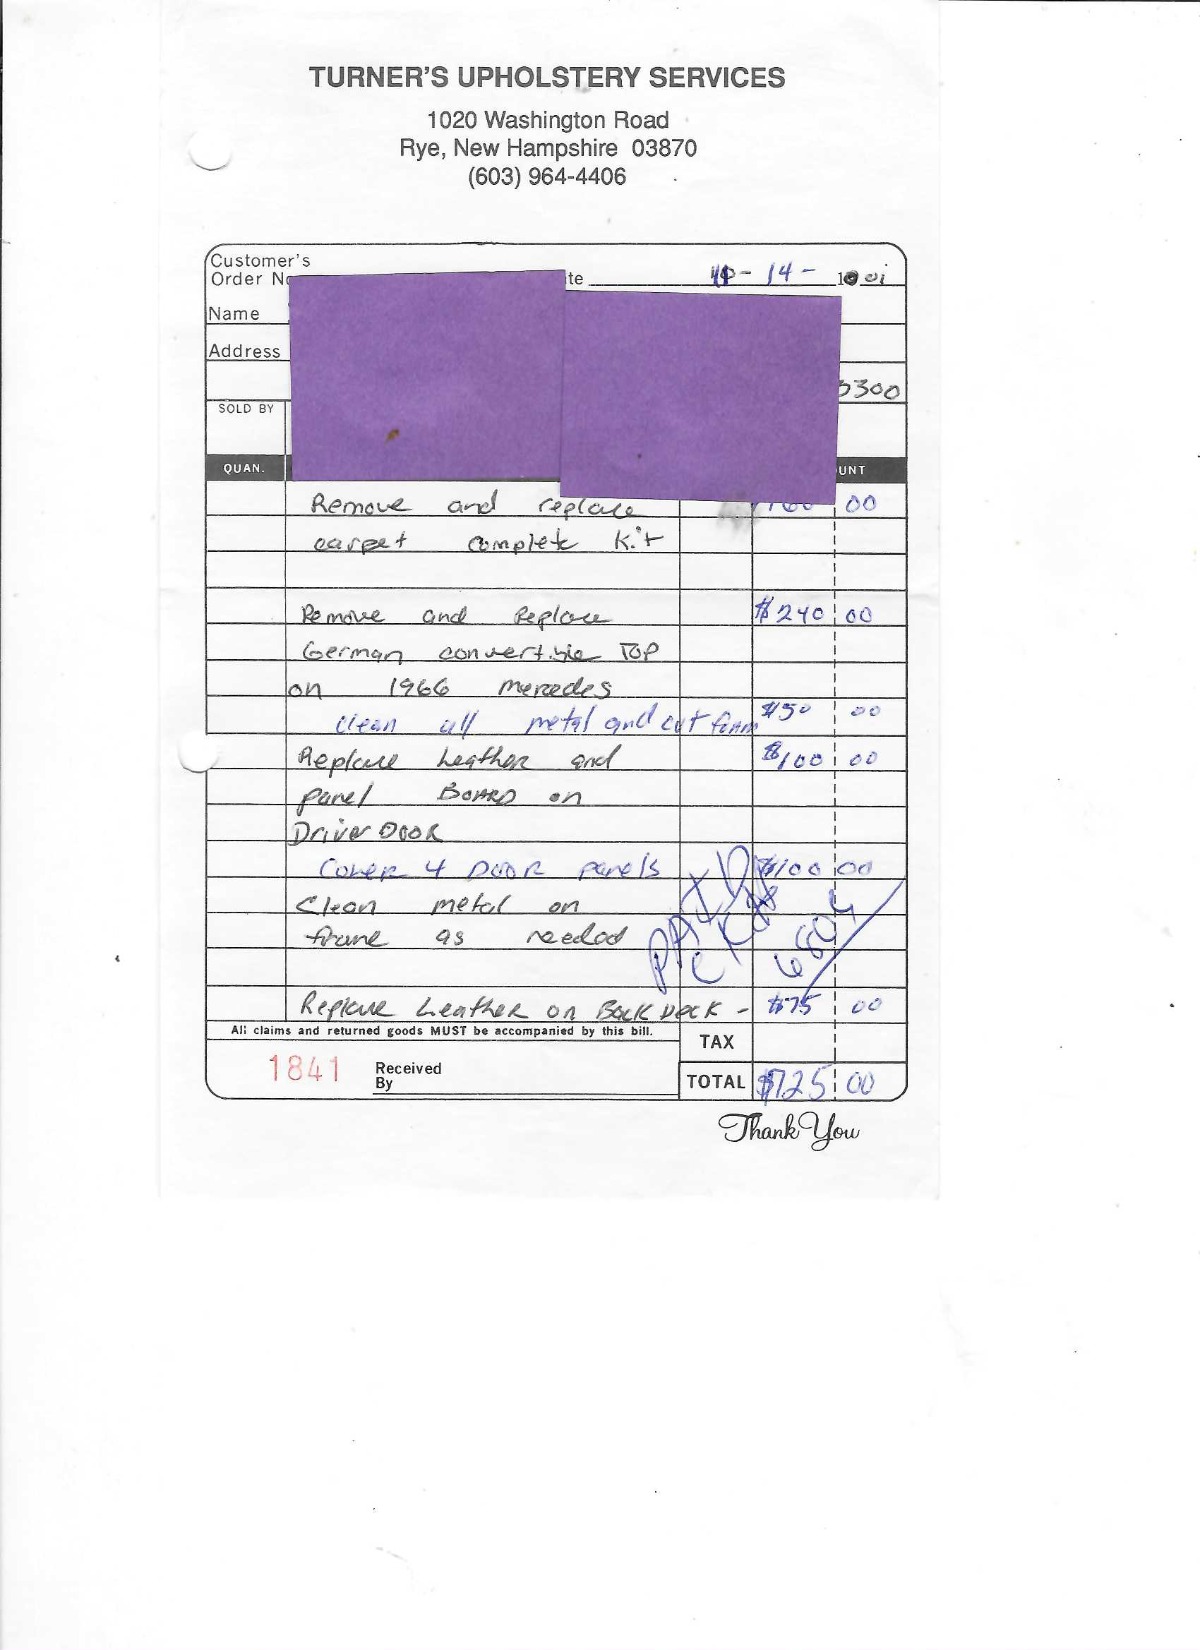 TURNER'S UPHOLSTERY SERVICES
1020 Washington Road
Rye, New Hampshire 03870
(603) 964-4406
Customer's
Order No
te - 14 -
Name
Address
3300
SOLD BY
QUAN. UNT
Remove and replace 160 00
carpet complete Kit
Remove and Replace $240 00
German convertible TOP
on 1966 mercedes
clean all metal and cut foam $50 00
Replace Leather and $100 00
panel BOARD on
Driver DOOR
Cover 4 DOOR panels $100 00
Clean metal on
frame as needed
PAID
CK#
6804
Replace Leather on Back Deck - $75 00
All claims and returned goods MUST be accompanied by this bill.
TAX
1841 Received
By
TOTAL $725 00
Thank You